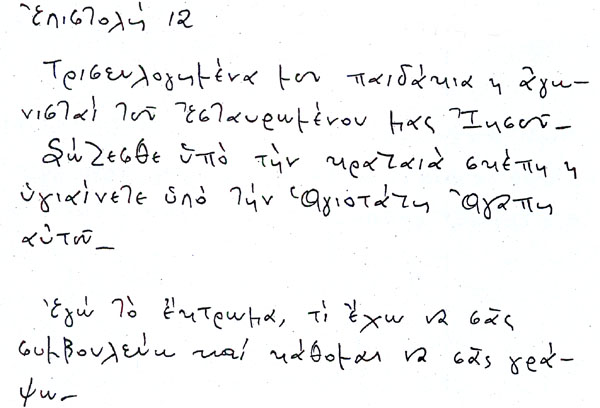 Ἐπιστολή 12
Τρισευλογημένα μου παιδάκια κ ἀγω-
νισταί τοῦ Ἐσταυρωμένου μας Ἰησοῦ_
Σώζεσθε ὑπό τήν κραταιά σκέπη κ
ὑγιαίνετε ὑπό τήν Ἁγιοτάτη Ἀγάπη
αὐτοῦ_
Ἐγώ τό ἔκτρωμα, τί ἔχω νά σᾶς
συμβουλεύω καί κάθομαι νά σᾶς γρά-
ψω_